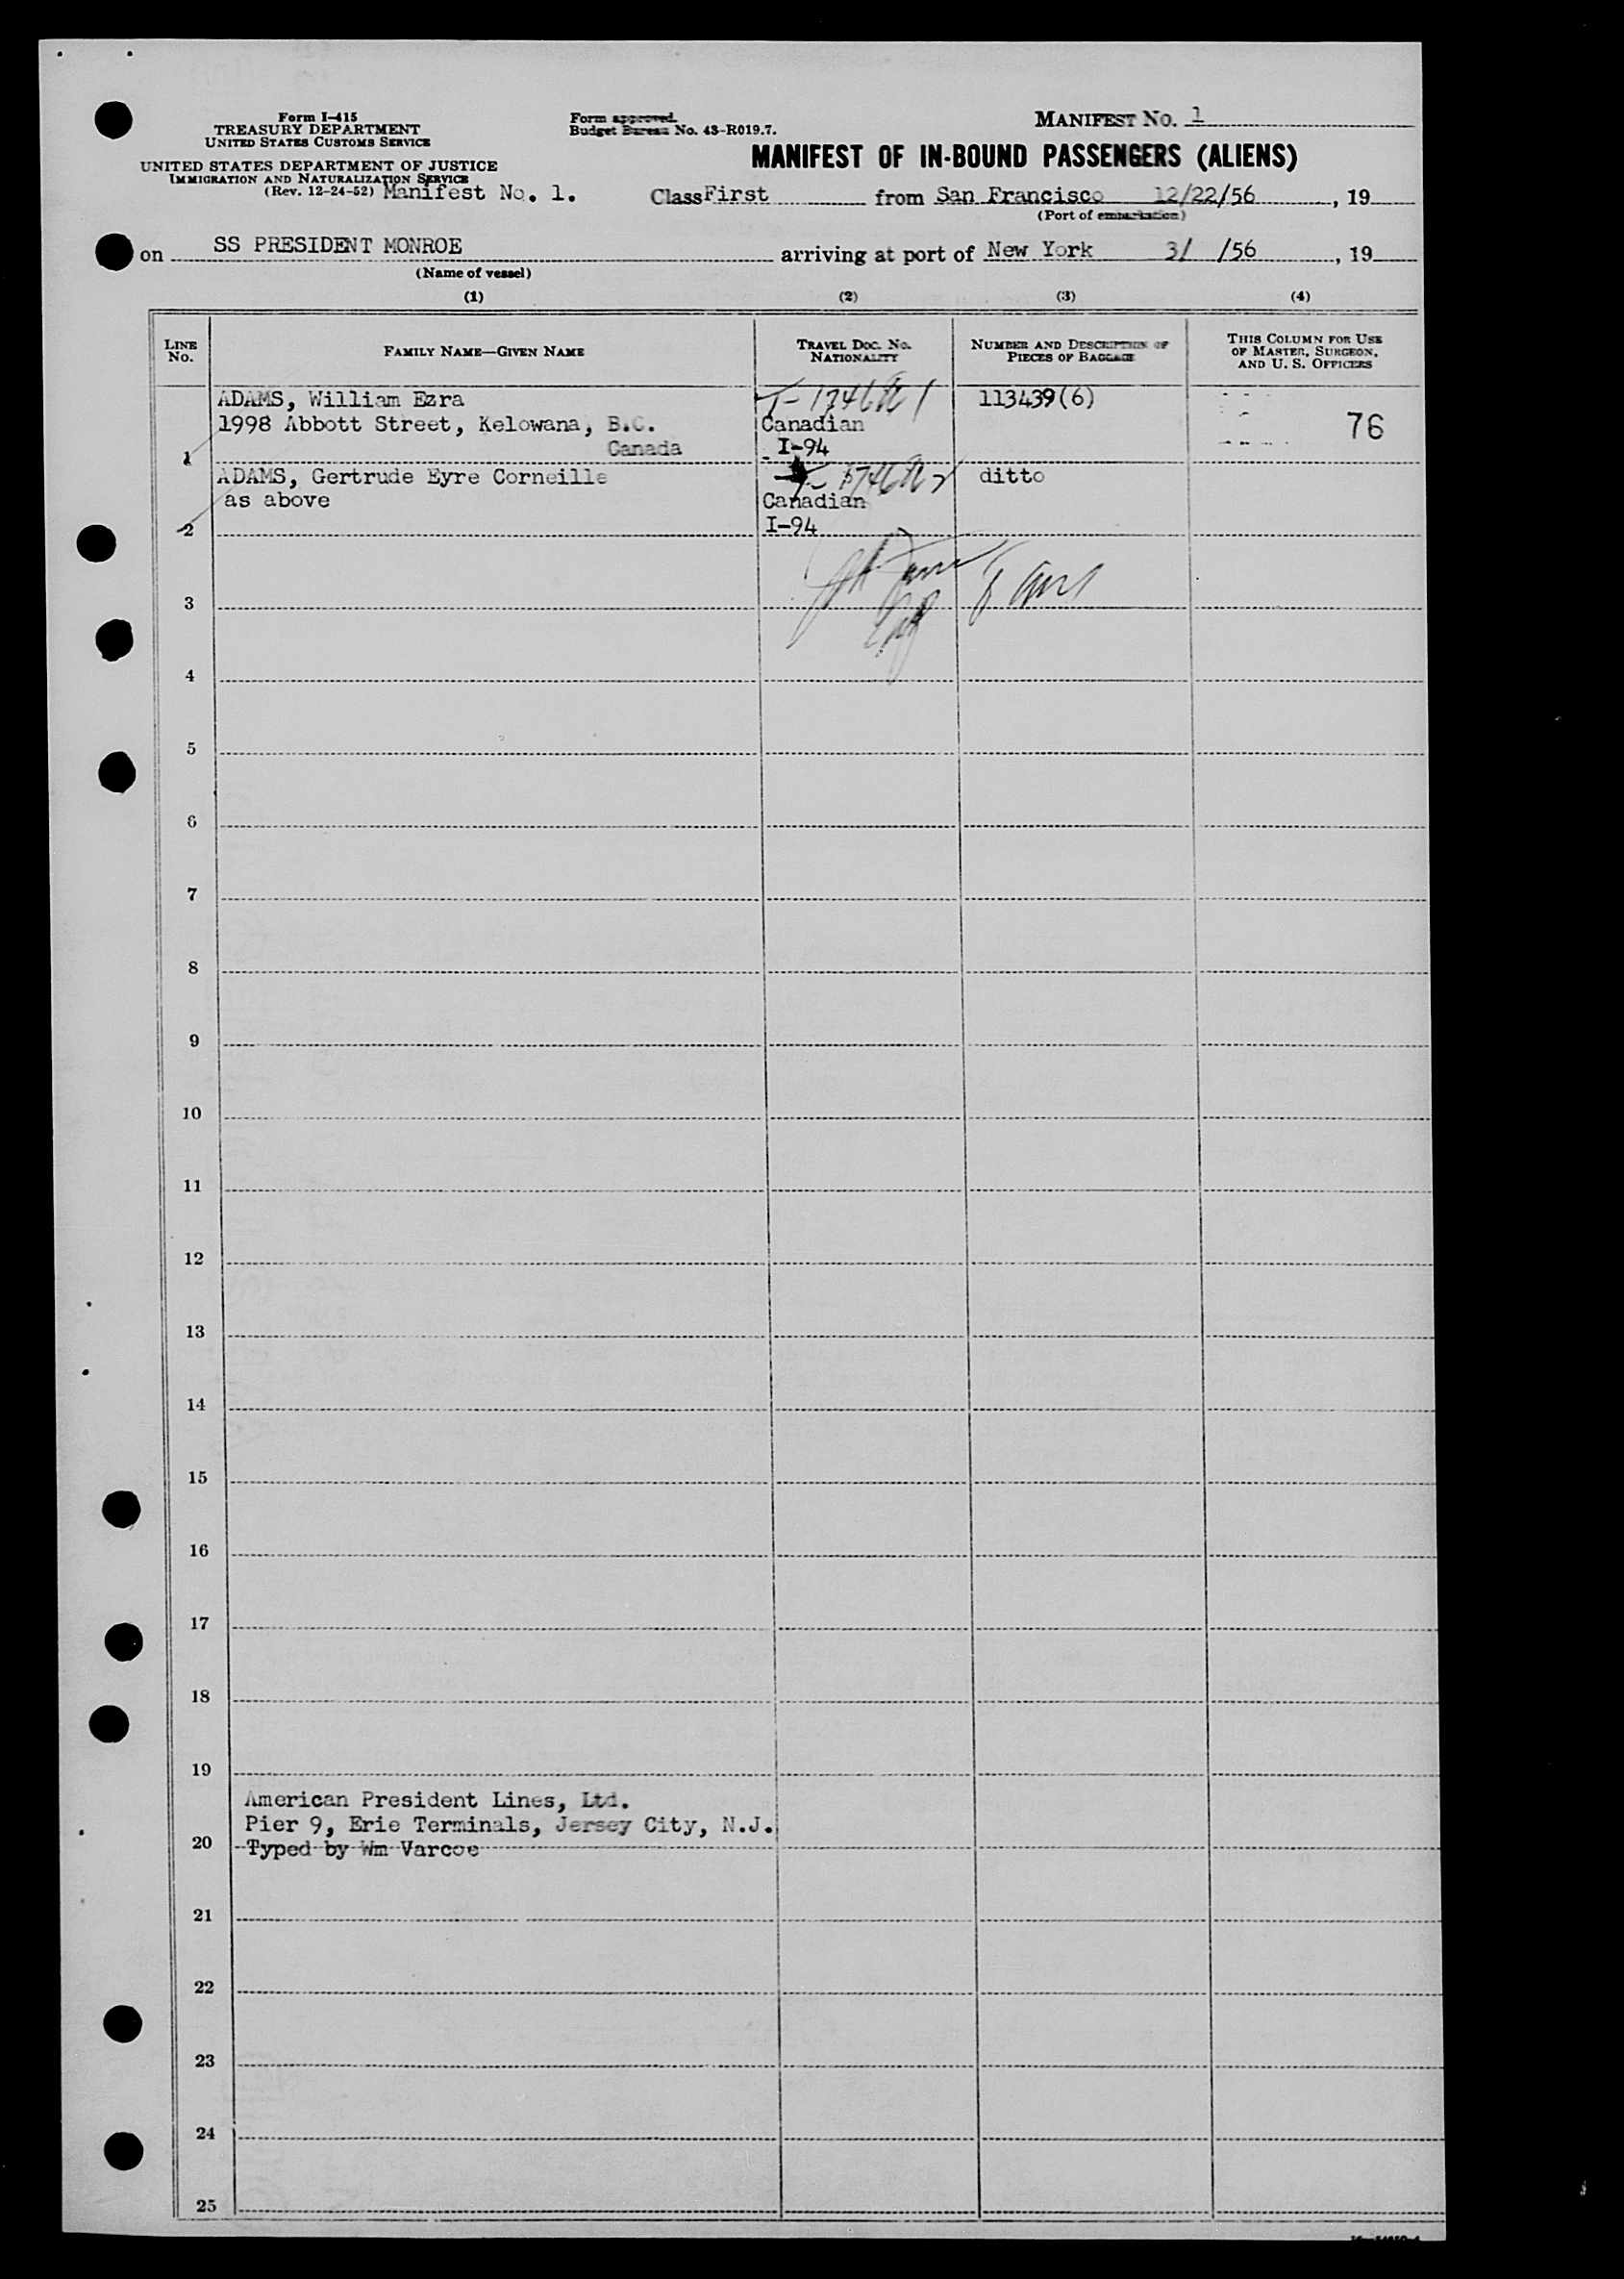 Form I-415
TREASURY DEPARTMENT
UNITED STATES CUSTOMS SERVICE
UNITED STATES DEPARTMENT OF JUSTICE
IMMIGRATION AND NATURALIZATION SERVICE
(Rev. 12-24-52) Manifest No. 1.
Form approved.
Budget Bureau No. 43-R019.7.
MANIFEST No. 1
MANIFEST OF IN-BOUND PASSENGERS (ALIENS)
Class First from San Francisco 12/22/56, 19
(Port of embarkation)
on SS PRESIDENT MONROE arriving at port of New York 3/ /56, 19
(Name of vessel)
(1) (2) (3) (4)
LINE No. FAMILY NAME—GIVEN NAME TRAVEL DOC. NO. NATIONALITY NUMBER AND DESCRIPTION OF PIECES OF BAGGAGE THIS COLUMN FOR USE OF MASTER, SURGEON, AND U. S. OFFICERS
ADAMS, William Ezra 113439(6)
1998 Abbott Street, Kelowana, B.C. Canadian 76
Canada I-94
1
ADAMS, Gertrude Eyre Corneille ditto
as above Canadian
2 I-94
3
4
5
6
7
8
9
10
11
12
13
14
15
16
17
18
19
American President Lines, Ltd.
Pier 9, Erie Terminals, Jersey City, N.J.
20 Typed by Wm Varcoe
21
22
23
24
25